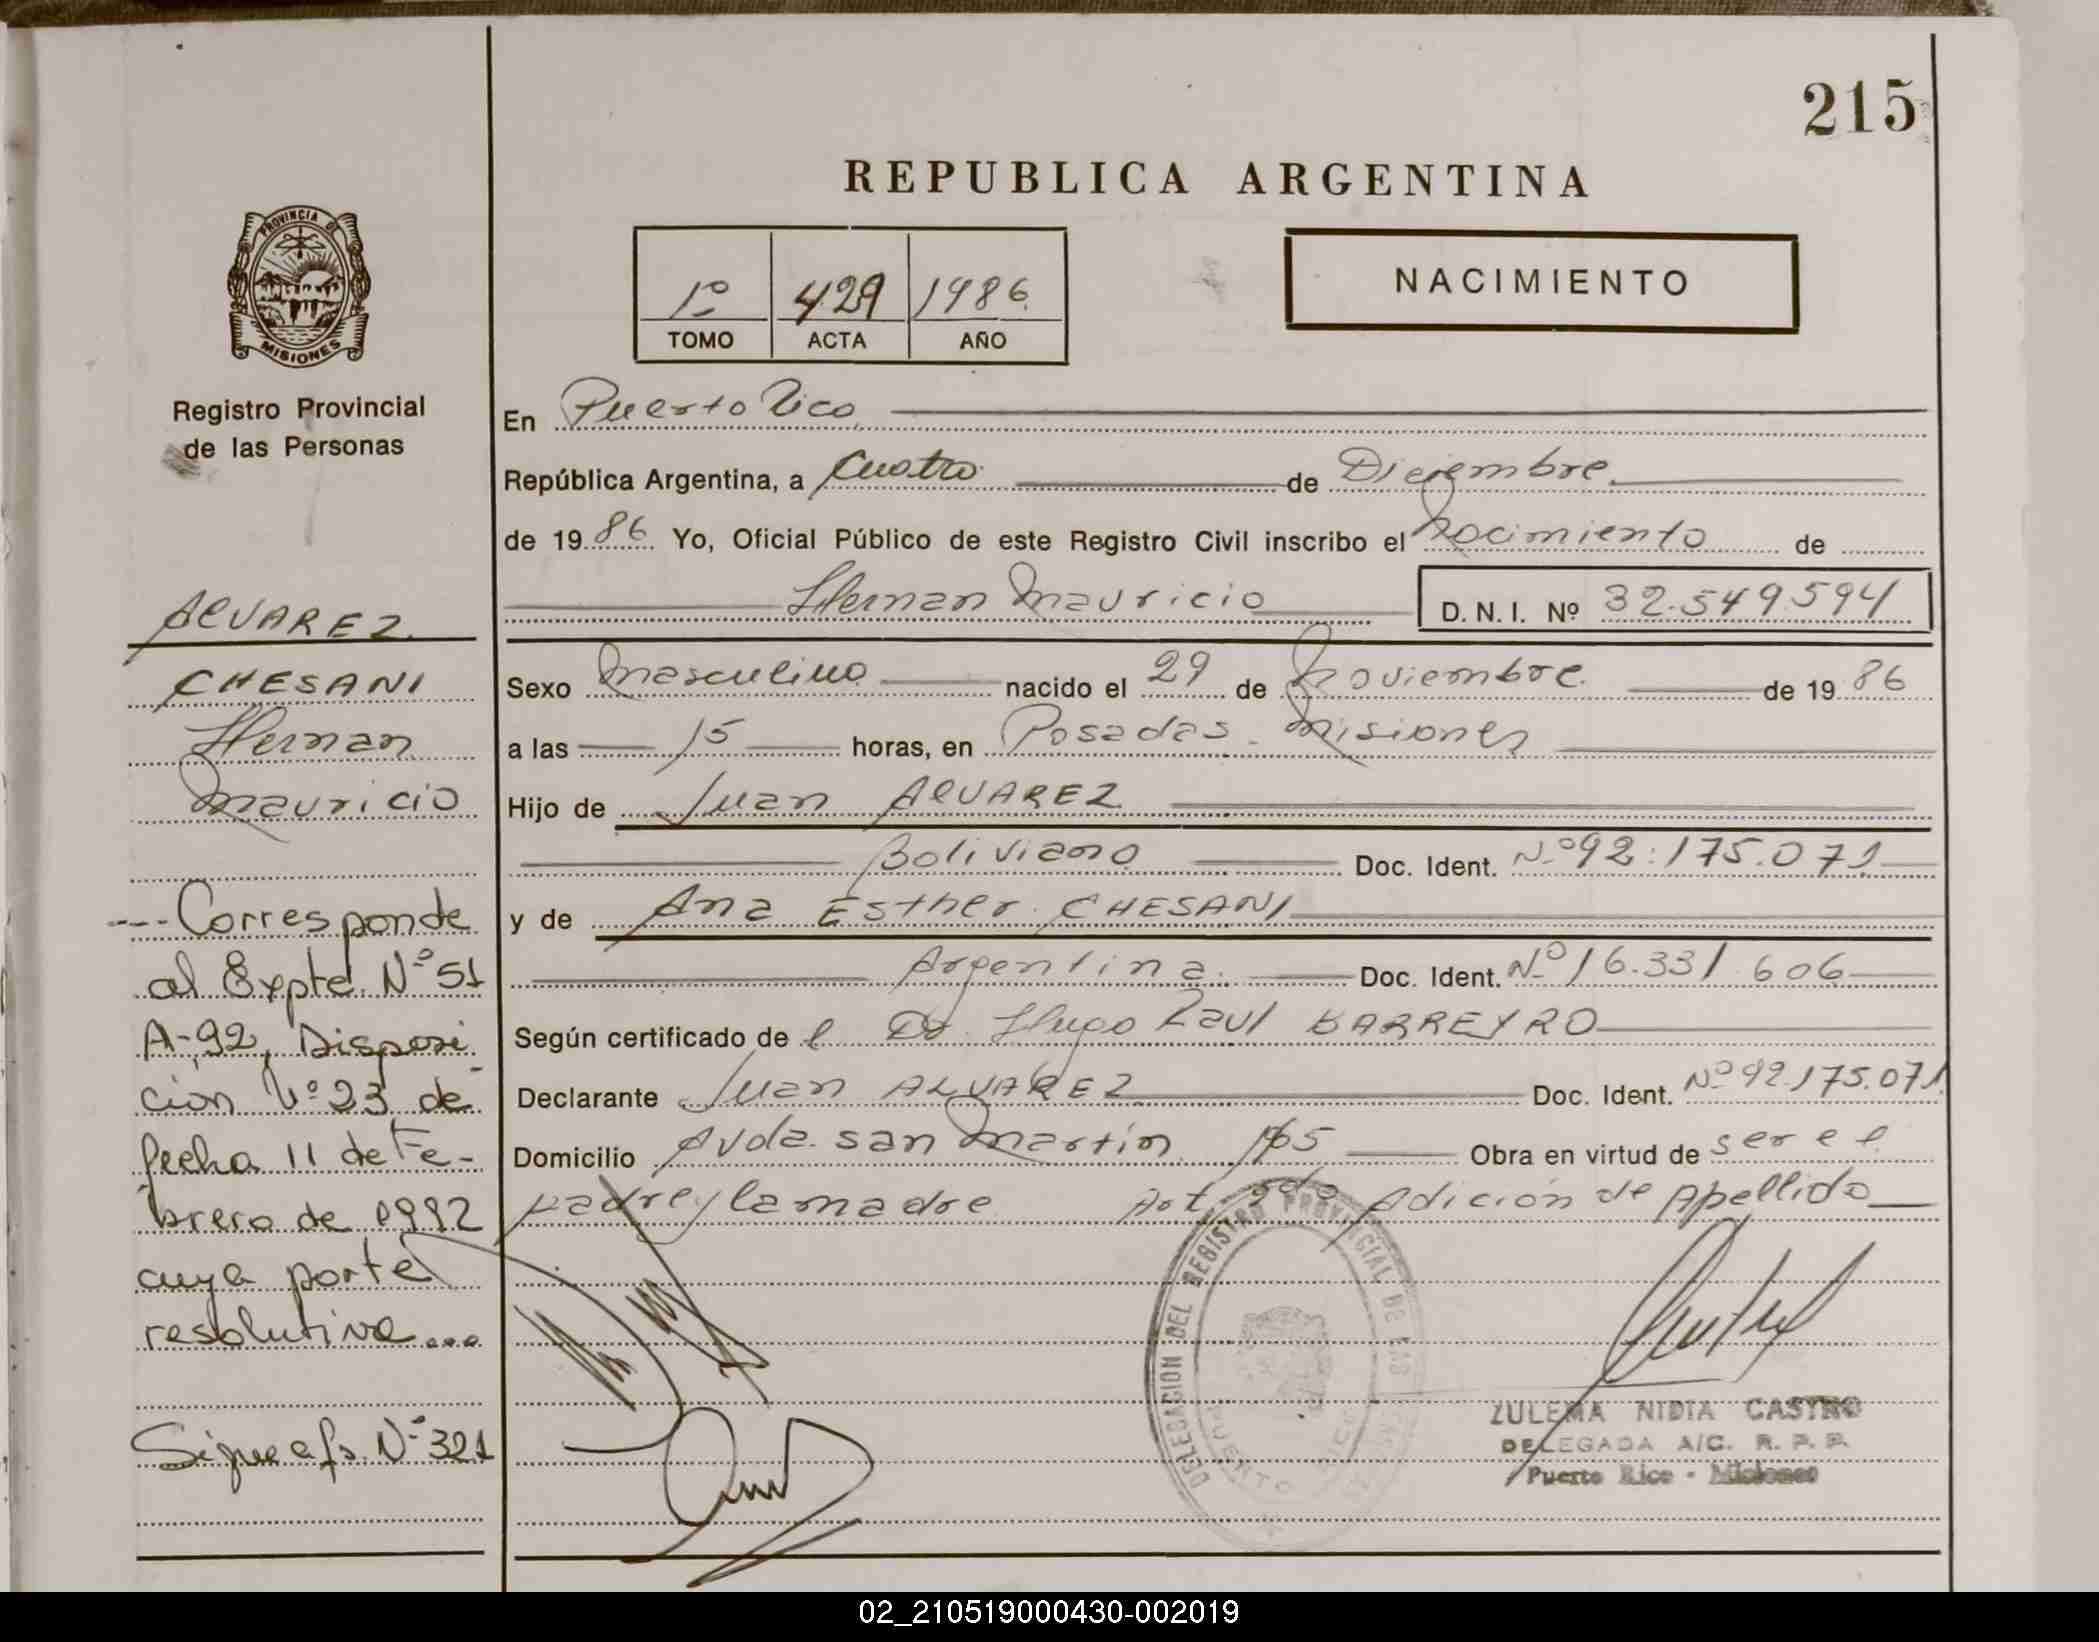 215
REPUBLICA ARGENTINA
PROVINCIA DE
MISIONES
Registro Provincial
de las Personas
1º 429 1986
TOMO ACTA AÑO
NACIMIENTO
En Puerto Rico
República Argentina, a Cuatro de Diciembre
de 1986 Yo, Oficial Público de este Registro Civil inscribo el nacimiento de
Hernan Mauricio D.N.I. Nº 32.549.594
Sexo masculino nacido el 29 de Noviembre de 1986
a las 15 horas, en Posadas - Misiones
Hijo de Juan ALVAREZ
Boliviano Doc. Ident. Nº 92.175.071
y de Ana Esther CHESANI
Argentina Doc. Ident. Nº 16.331.606
Según certificado de l Dr. Hugo Raul BARREYRO
Declarante Juan ALVAREZ Doc. Ident. Nº 92.175.071
Domicilio Avda. San Martín 165 Obra en virtud de ser el
padre y la madre Art. 2do Adición de Apellido
ALVAREZ
CHESANI
Hernan
Mauricio
--- Corresponde
al Expte. Nº 51
A-92, Disposi-
ción Nº 23 de
fecha 11 de Fe-
brero de 1992
cuya parte
resolutiva...
Sigue a fs. Nº 321
DELEGACION DEL REGISTRO PROVINCIAL DE LAS
PUERTO RICO
ZULEMA NIDIA CASTRO
DELEGADA A/C. R. P. P.
Puerto Rico - Misiones
02_210519000430-002019